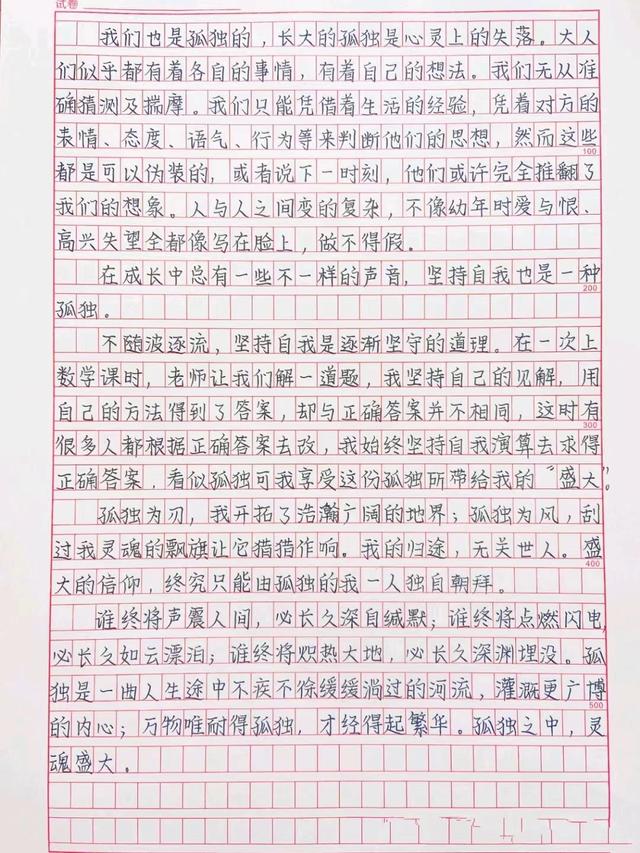 试卷
我们也是孤独的，长大的孤独是心灵上的失落。大人
们似乎都有着各自的事情，有着自己的想法。我们无从准
确猜测及揣摩。我们只能凭借着生活的经验，凭着对方的
表情、态度、语气、行为等来判断他们的思想，然而这些
100
都是可以伪装的，或者说下一时刻，他们或许完全推翻了
我们的想象。人与人之间变的复杂，不像幼年时爱与恨、
高兴失望全都像写在脸上，做不得假。
在成长中总有一些不一样的声音，坚持自我也是一种
200
孤独。
不随波逐流，坚持自我是逐渐坚守的道理。在一次上
数学课时，老师让我们解一道题，我坚持自己的见解，用
自己的方法得到了答案，却与正确答案并不相同，这时有
300
很多人都根据正确答案去改，我始终坚持自我演算去求得
正确答案．看似孤独可我享受这份孤独所带给我的“盛大”。
孤独为刃，我开拓了浩瀚广阔的地界；孤独为风，刮
过我灵魂的飘旗让它猎猎作响。我的归途，无关世人。盛
400
大的信仰，终究只能由孤独的我一人独自朝拜。
谁终将声震人间，必长久深自缄默；谁终将点燃闪电，
必长久如云漂泊；谁终将炽热大地，必长久深渊埋没。孤
独是一曲人生途中不疾不徐缓缓淌过的河流，灌溉更广博
500
的内心；万物唯耐得孤独，才经得起繁华。孤独之中，灵
魂盛大。